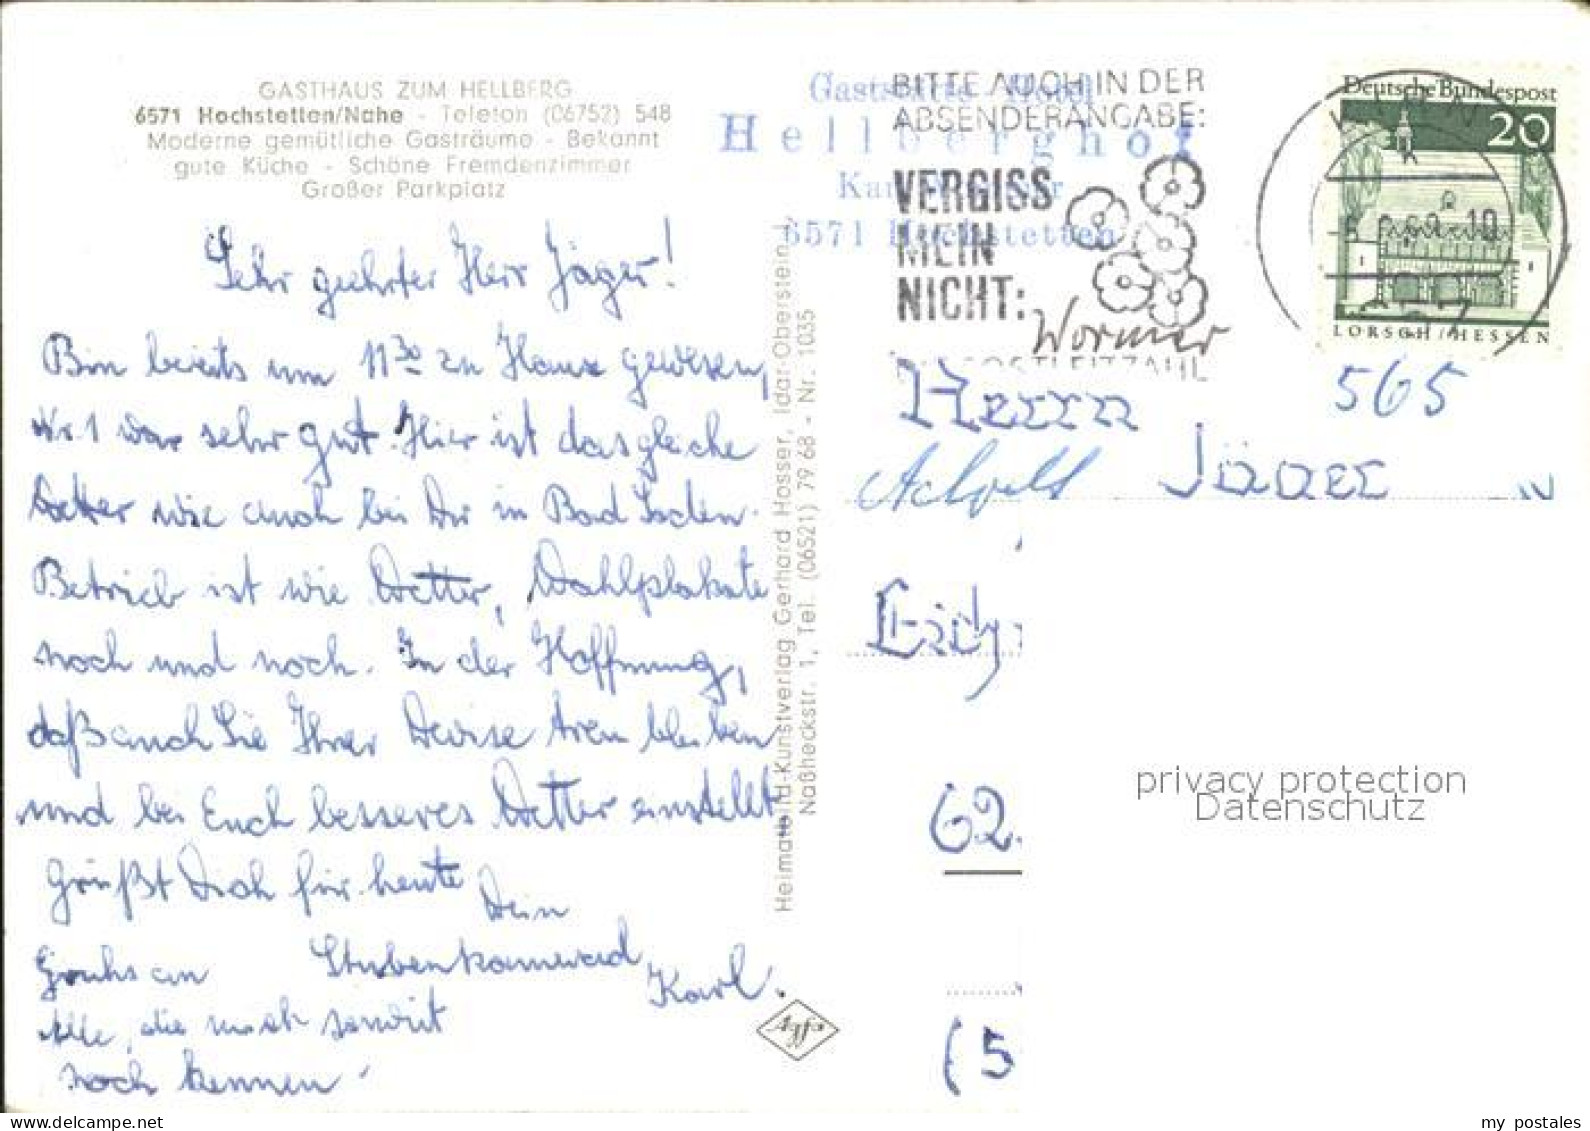 GASTHAUS ZUM HELLBERG
6571 Hochstetten/Nahe - Telefon (06752) 548
Moderne gemütliche Gasträume - Bekannt
gute Küche - Schöne Fremdenzimmer
Großer Parkplatz
Gaststätte Hotel
Hellberghof
6571 Hochstetten
BITTE AUCH IN DER
ABSENDERANGABE:
VERGISS
MEIN
NICHT:
POSTLEITZAHL
Deutsche Bundespost
20
LORSCH/HESSEN
Sehr geehrter Herr Jäger!
Bin bereits um 11 30 zu Hause gewesen,
Nr. 1 war sehr gut. Hier ist das gleiche
Wetter wie auch bei Dir in Bad Soden.
Betrieb ist wie Wetter, Wahlplakate
noch und noch. In der Hoffnung,
daß auch Sie Ihrer Devise treu bleiben
und bei Euch besseres Wetter einstellt
grüßt Dich für heute
Dein
Stubenkamerad
Karl.
Gruhs an
Alle, die mich soweit
noch kennen.
Heimatbild-Kunstverlag Gerhard Hosser, Idar-Oberstein
Naßheckstr. 1, Tel. (06521) 79 68 - Nr. 1035
Agfa
565
Herrn
Jäger
62.
(5
privacy protection
Datenschutz
my postales